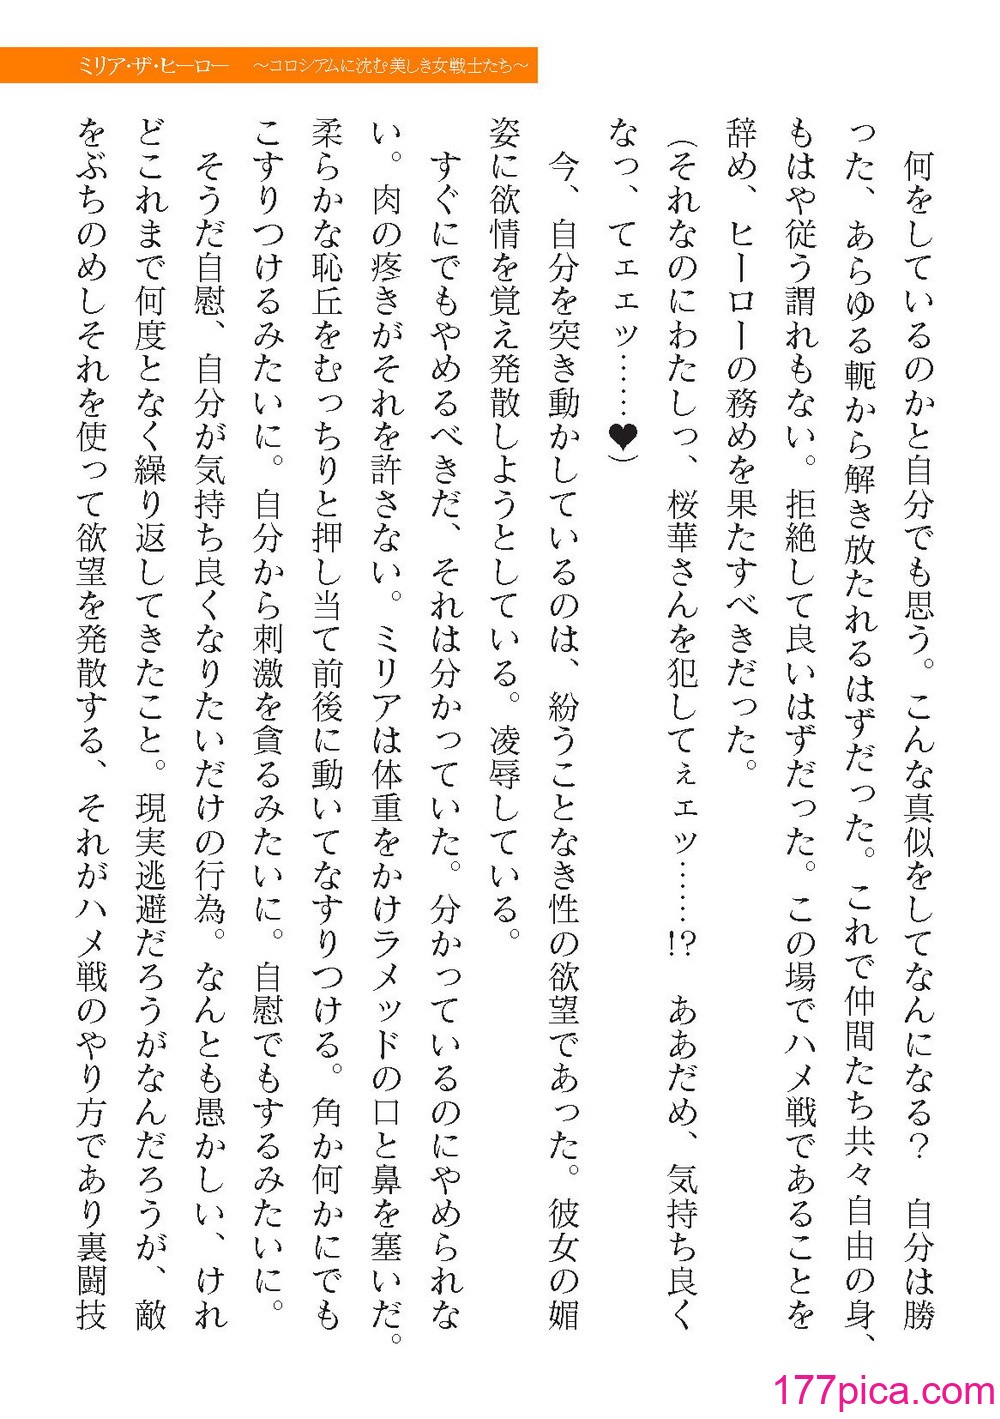 ミリア・ザ・ヒーロー　～コロシアムに沈む美しき女戦士たち～
何をしているのかと自分でも思う。こんな真似をしてなんになる？　自分は勝
った、あらゆる軛から解き放たれるはずだった。これで仲間たち共々自由の身、
もはや従う謂れもない。拒絶して良いはずだった。この場でハメ戦であることを
辞め、ヒーローの務めを果たすべきだった。
（それなのにわたしっ、桜華さんを犯してぇェッ……!?　ああだめ、気持ち良く
なっ、てェェッ……♥）
今、自分を突き動かしているのは、紛うことなき性の欲望であった。彼女の媚
姿に欲情を覚え発散しようとしている。凌辱している。
すぐにでもやめるべきだ、それは分かっていた。分かっているのにやめられな
い。肉の疼きがそれを許さない。ミリアは体重をかけラメッドの口と鼻を塞いだ。
柔らかな恥丘をむっちりと押し当て前後に動いてなすりつける。角か何かにでも
こすりつけるみたいに。自分から刺激を貪るみたいに。自慰でもするみたいに。
そうだ自慰、自分が気持ち良くなりたいだけの行為。なんとも愚かしい、けれ
どこれまで何度となく繰り返してきたこと。現実逃避だろうがなんだろうが、敵
をぶちのめしそれを使って欲望を発散する、それがハメ戦のやり方であり裏闘技
177pica.com